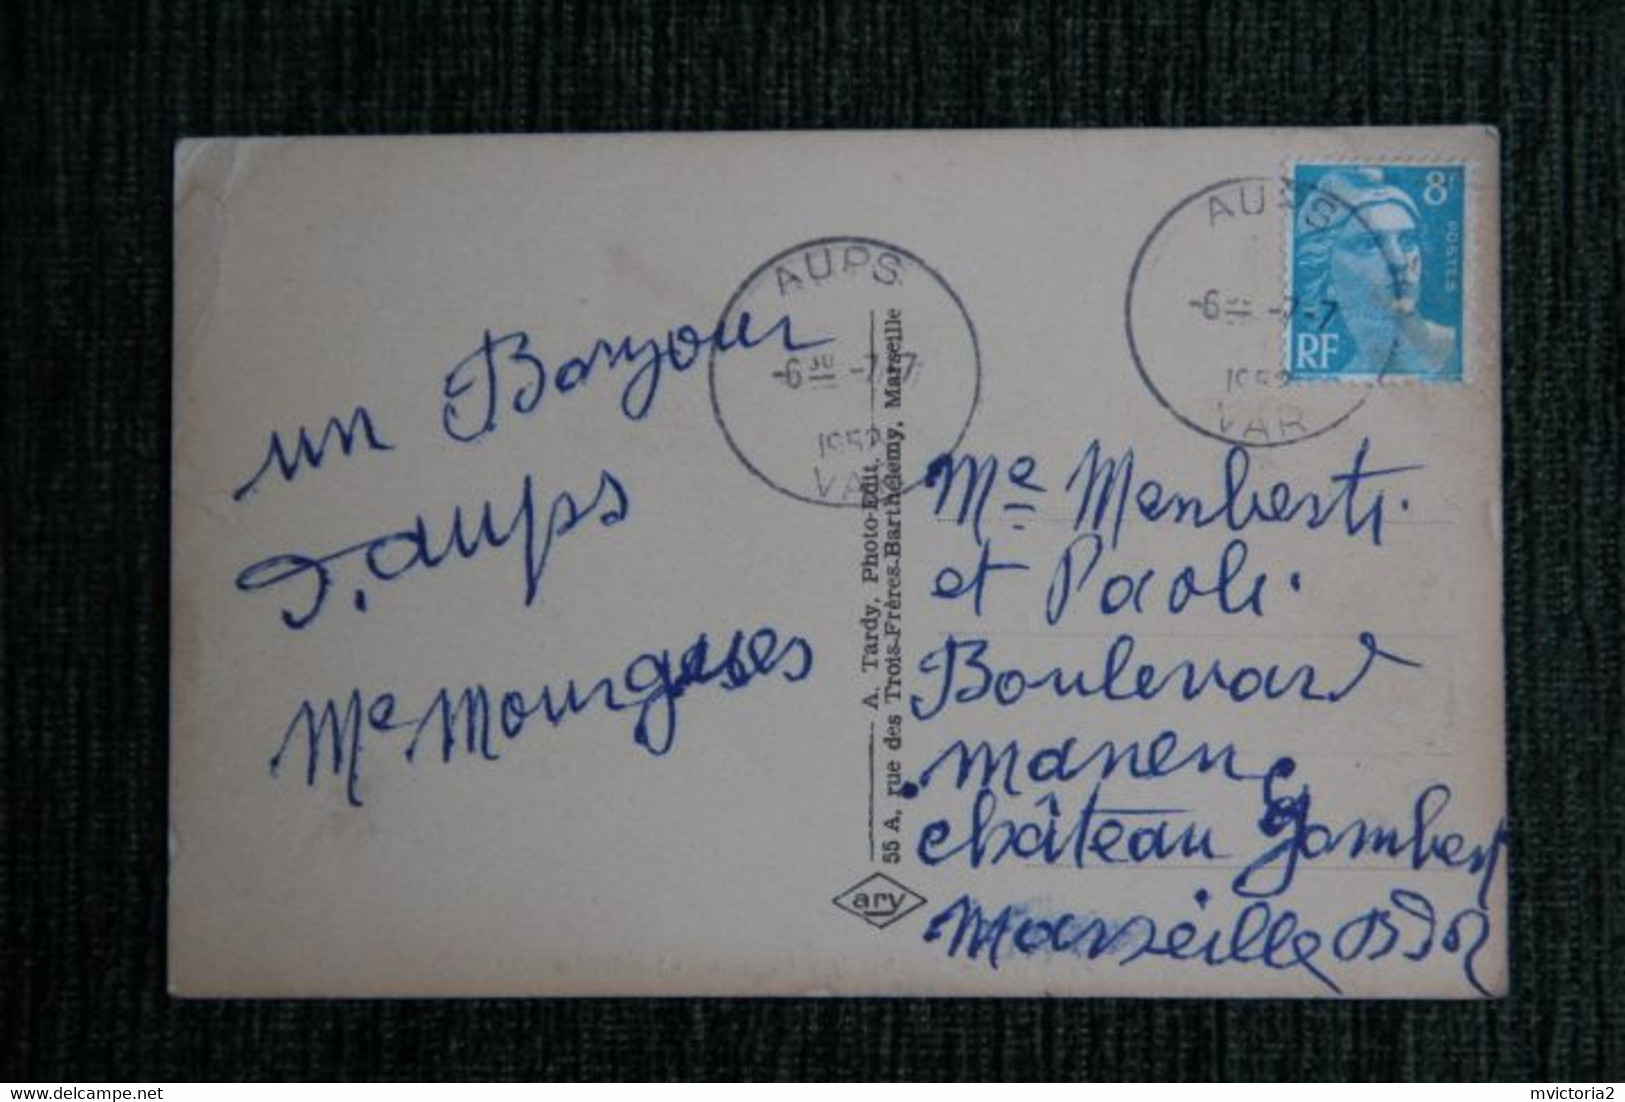 un Bonjour
d'aups
Me Mourgues
AUPS
-6 30 -7 -7
1952
VAR
A. Tardy, Photo-Edit.
55 A, rue des Trois-Frères-Barthélemy, Marseille
ary
AUPS
-6 -7 -7
1952
VAR
8F
POSTES
RF
Me Menberti.
et Paoli.
Boulevard
manen
château Gombert
Marseille B D R
delcampe.net
mvictoria2